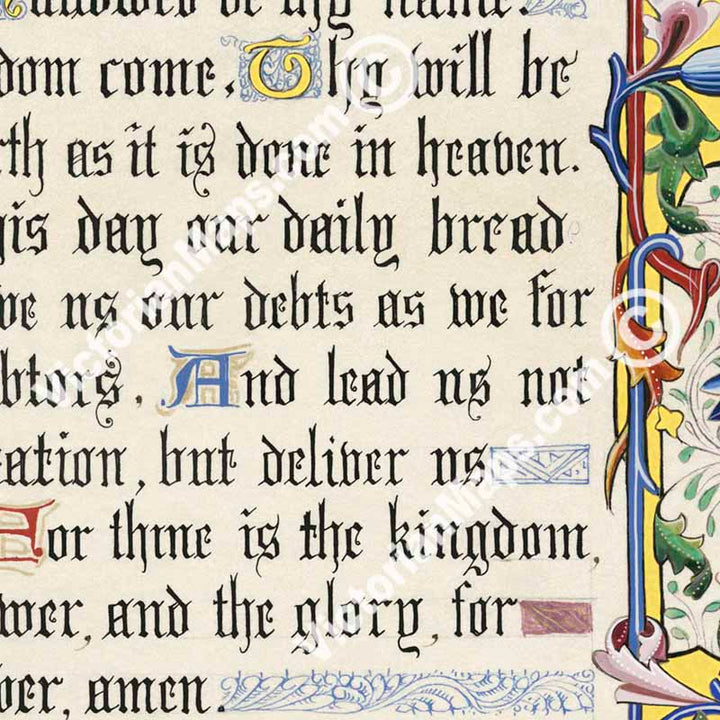 hallowed be thy name.
dom come. Thy will be
rth as it is done in heaven.
his day our daily bread
ve us our debts as we for
btors. And lead us not
tation, but deliver us
For thine is the kingdom,
wer, and the glory, for
ver, amen.
© VictorianMaps.com
© VictorianMaps.com
VictorianMaps.com